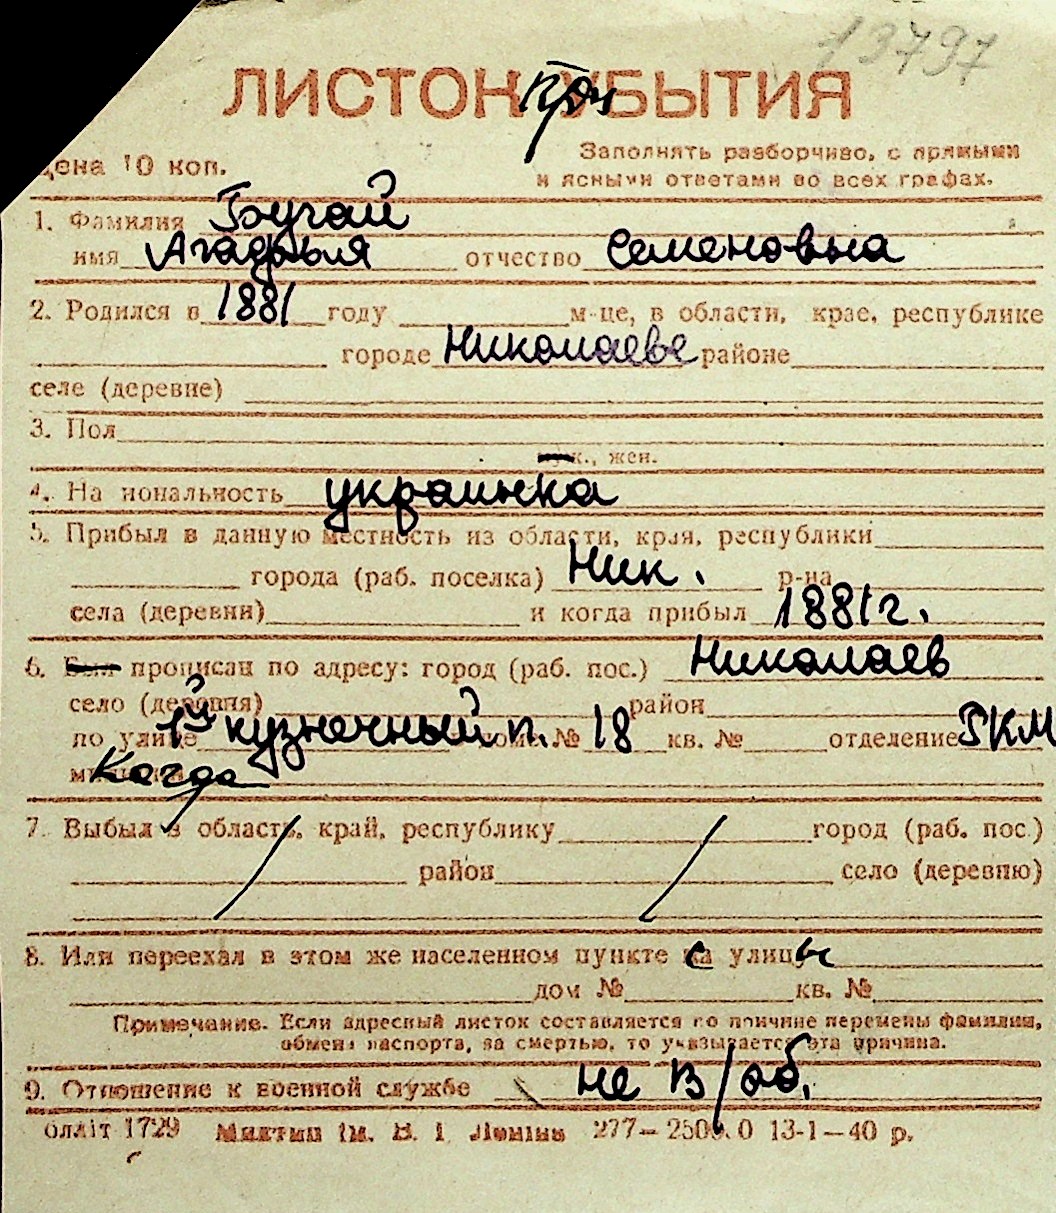 13797
ЛИСТОК УБЫТИЯ
При
Цена 10 коп.
Заполнять разборчиво, с прямыми
и ясными ответами во всех графах.
1. Фамилия Бугай
имя Агафья отчество Семеновна
2. Родился в 1881 году м-це, в области, крае, республике
городе Николаеве районе
селе (деревне)
3. Пол
муж., жен.
4. Национальность украинка
5. Прибыл в данную местность из области, края, республики
города (раб. поселка) Ник. р-на
села (деревни) и когда прибыл 1881 г.
6. Был прописан по адресу: город (раб. пос.) Николаев
село (деревня) район
по улице 1й кузнечный п. дома № 18 кв. № отделение 5 КМ
милиции Когда
7. Выбыл в область, край, республику город (раб. пос.)
район село (деревню)
8. Или переехал в этом же населенном пункте с улицы
дом № кв. №
Примечание. Если адресный листок составляется по причине перемены фамилии,
обмена паспорта, за смертью, то указывается эта причина.
9. Отношение к военной службе не в/об.
блліт 1729 277—2500.0 13-1—40 р.